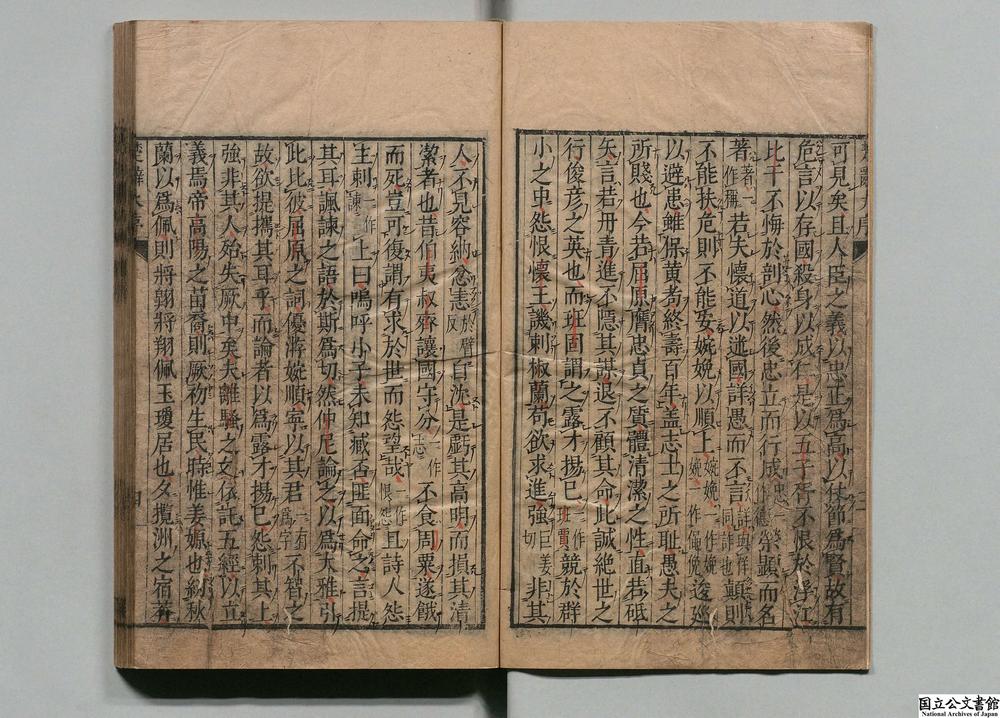 可見矣且人臣之義以忠正爲高以伏節爲賢故有
危言以存國殺身以成仁是以五子胥不恨於浮江
比干不悔於剖心然後忠立而行成榮顯而名
著若夫懷道以迷國詳愚而不言顛則
不能扶危則不能安婉娩以順上逡廵
以避患雖保黃耇終壽百年蓋志士之所耻愚夫之
所賤也今若屈原膺忠貞之質體清潔之性直若砥
矢言若丹青進不隱其謀退不顧其命此誠絕世之
行俊彥之英也而班固謂之露才揚己競於群
小之中怨恨懷王譏刺椒蘭苟欲求進強巨姜切非其
人不見容納忿恚自沈是虧其高明而損其清
潔者也昔伯夷叔齊讓國守分一作志不食周粟遂餓
而死豈可復謂有求於世而怨望哉且詩人怨
主刺一作諫上曰嗚呼小子未知臧否匪面命之言提
其耳諷諫之語於斯爲切然仲尼論之以爲大雅引
此比彼屈原之詞優游婉順寧以其君一有爲字不智之
故欲提攜其耳乎而論者以爲露才揚己怨刺其上
強非其人殆失厥中矣夫離騷之文依託五經以立
義焉帝高陽之苗裔則厥初生民時惟姜嫄也紉秋
蘭以爲佩則將翱將翔佩玉瓊居也夕攬洲之宿莽
国立公文書館
National Archives of Japan